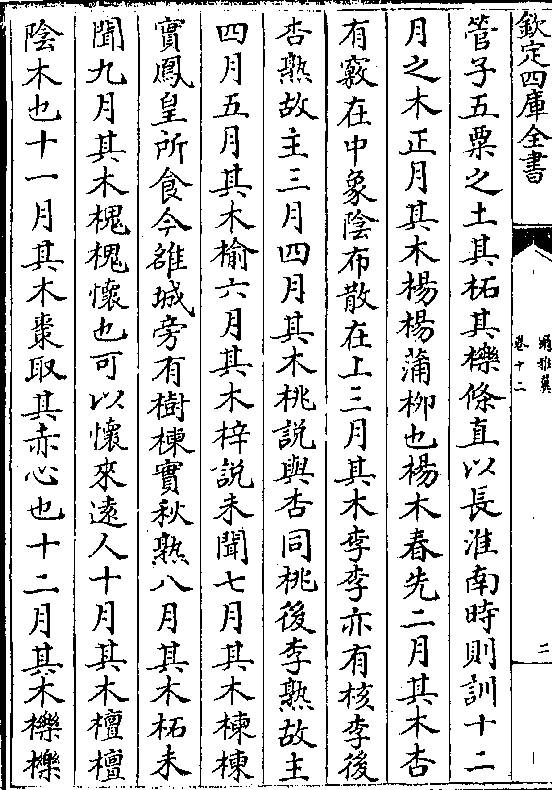 欽定四庫全書
爾雅翼
卷十二
二
管子五粟之土其柘其櫟條直以長淮南時則訓十二
月之木正月其木楊楊蒲柳也楊木春先二月其木杏
有竅在中象陰布散在上三月其木李李亦有核李後
杏熟故主三月四月其木桃説與杏同桃後李熟故主
四月五月其木榆六月其木梓説未聞七月其木楝楝
實鳳皇所食今雒城旁有樹楝實秋熟八月其木柘未
聞九月其木槐槐懷也可以懷來逺人十月其木檀檀
陰木也十一月其木棗取其赤心也十二月其木櫟櫟